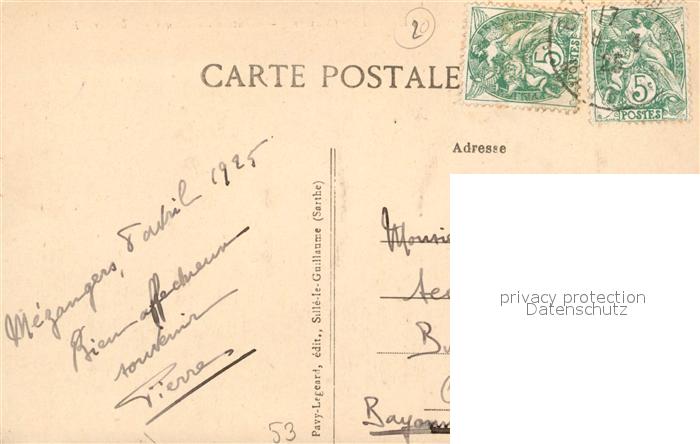 20
CARTE POSTALE
5c
POSTES
5c
POSTES
Adresse
Mézangers, 8 avril 1925
Bien affectueux
souvenir
Pierre
53
Pavy-Legeard, édit., Sillé-le-Guillaume (Sarthe)
Monsie
B
Bayonn
privacy protection
Datenschutz